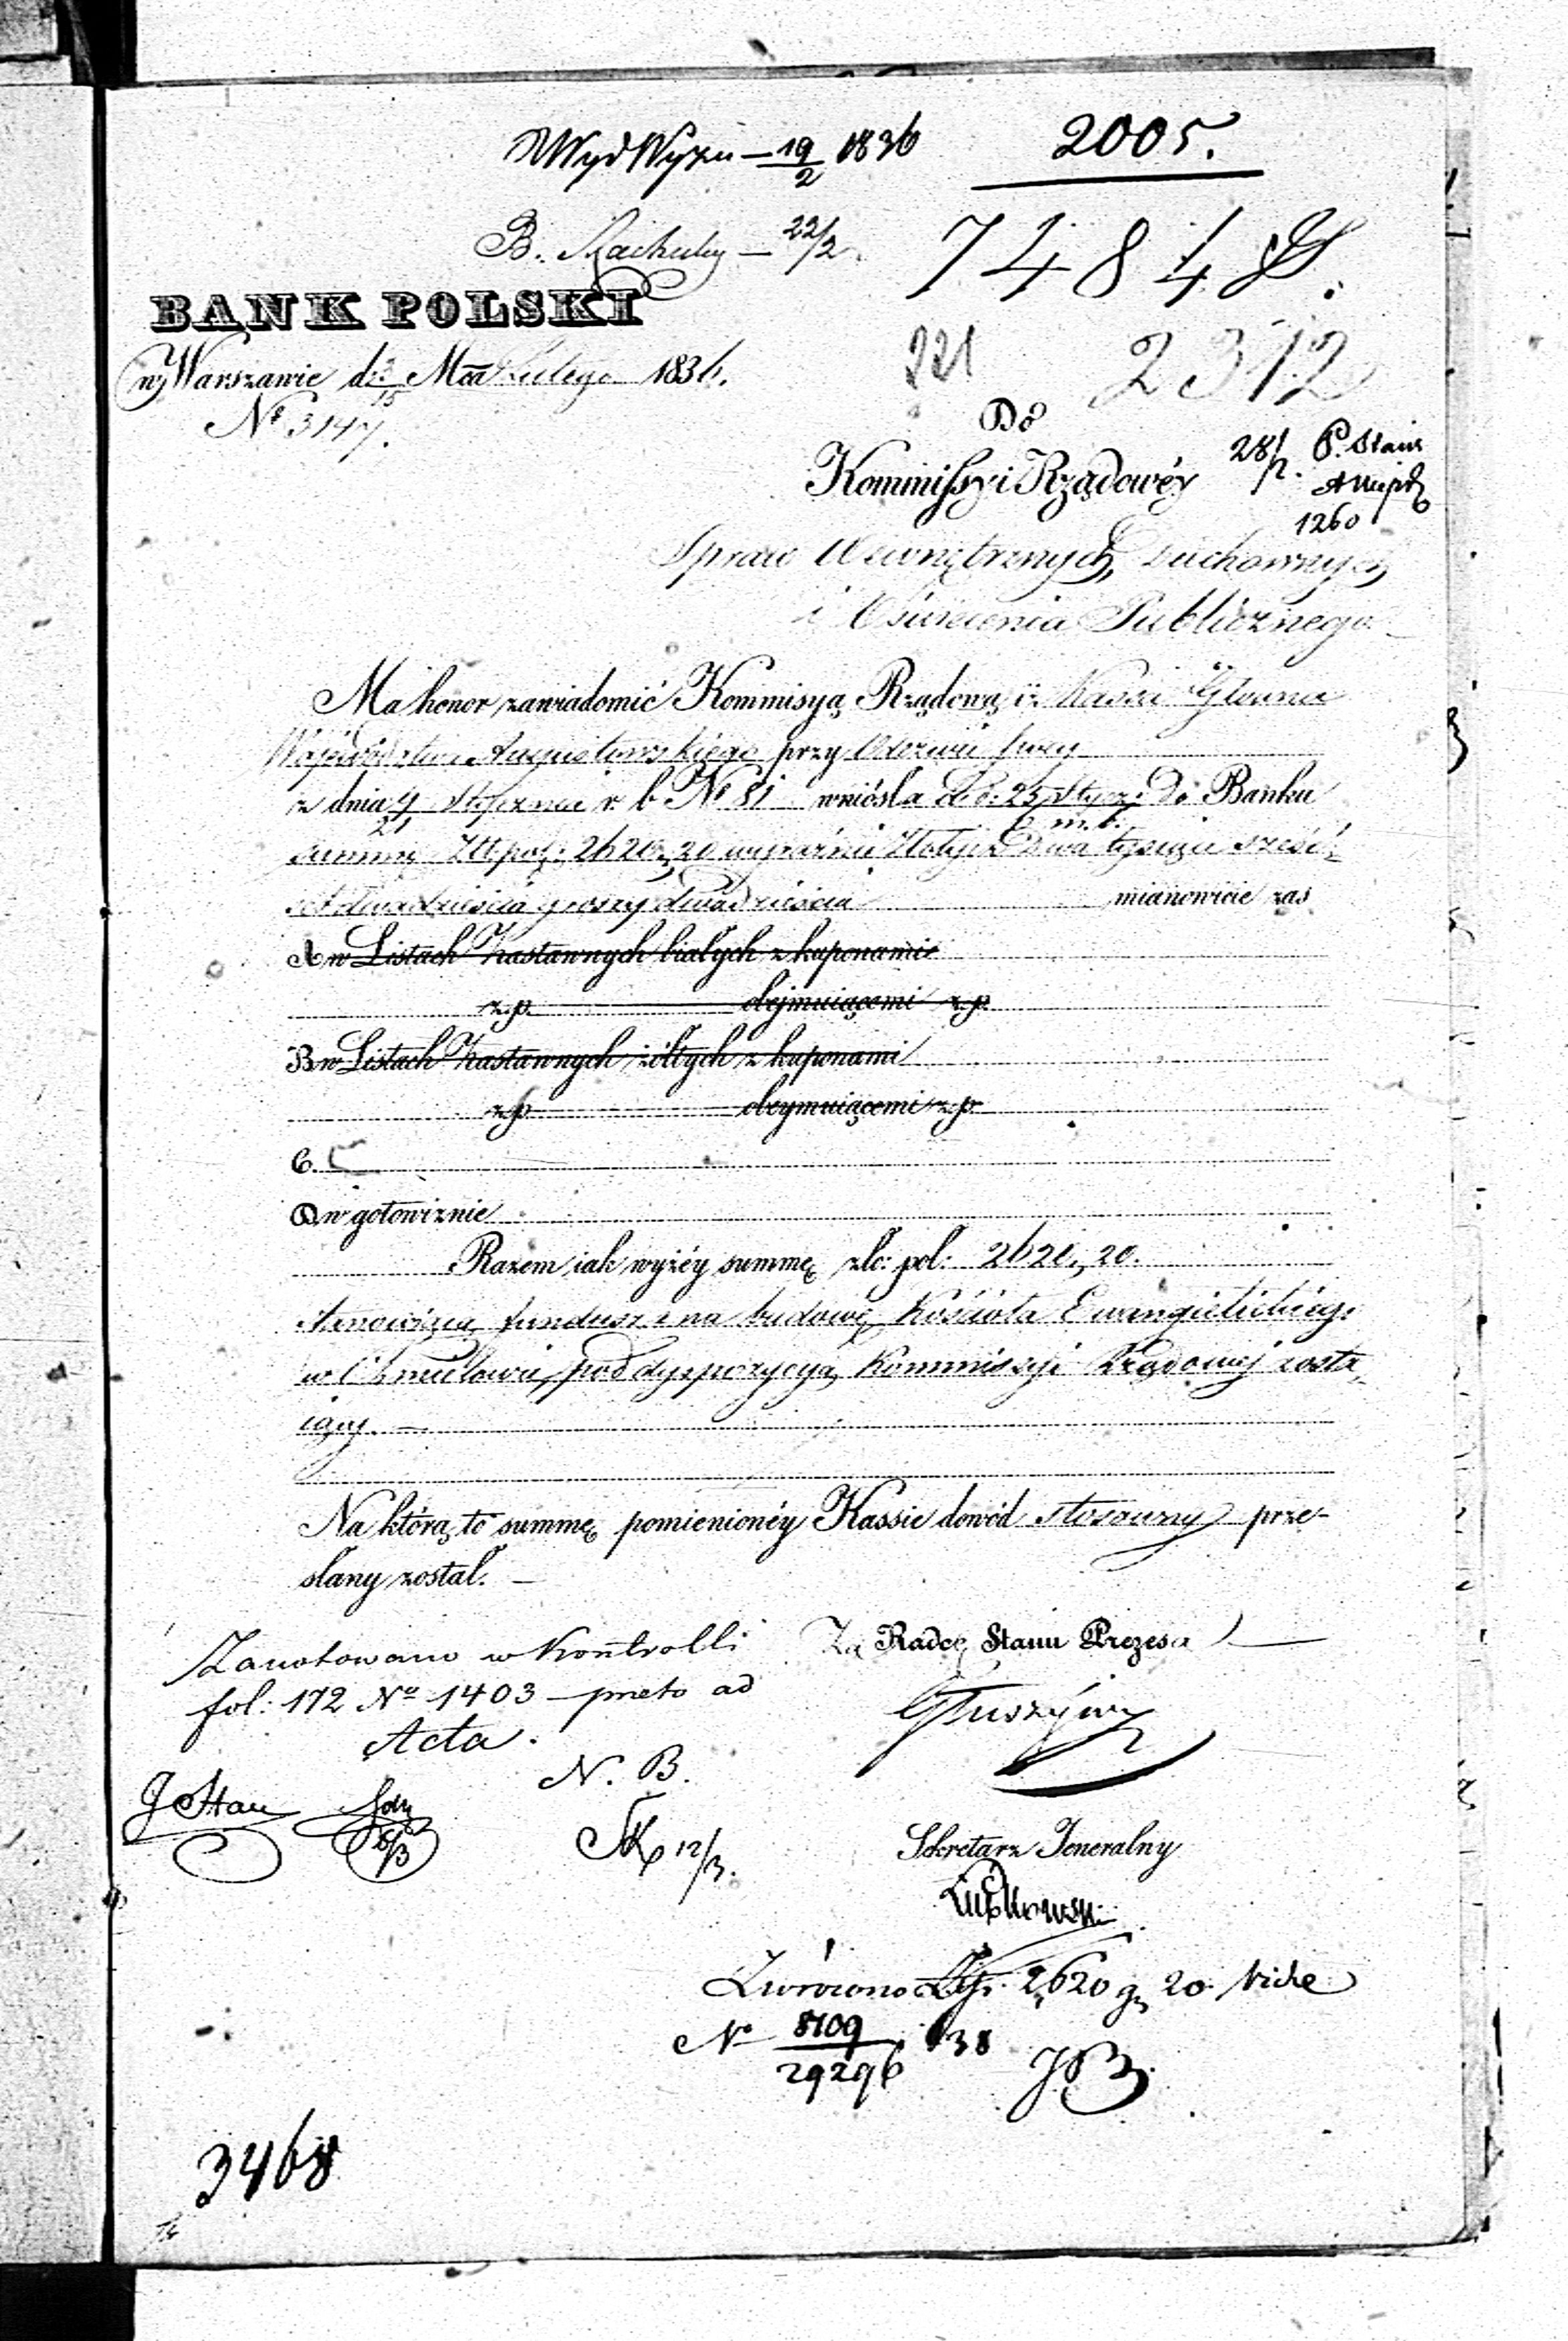 Wyd Wyzn — 19/2 1836 2005.
B. — 22/2. 7484
BANK POLSKI
w Warszawie d: 3/15 Mca Lutego 1836. 221 2312
Nº 3147.
Do
Kommissyi Rządowéy 28/2. P. Stanu
1260
Spraw Wewnętrznych, Duchownych
i Oświecenia Publicznego
Ma honor zawiadomić Kommisyą Rządową iż Kassa Główna
Województwa Augustowskiego przy Odezwie swey
z dnia 9/21 Stycznia r. b. Nº 81 wniósła d. 25 Stycz: Do Banku
m. b.
summę Zł. pol: 2620,, 20 wyraźnie Złotych Dwa tysiące sześć-
set dwadzieścia groszy dwadzieścia mianowicie zaś
A w Listach Zastawnych białych z kuponami
z.p. obejmuiącemi z.p.
B w Listach Zastawnych żółtych z kuponami
z.p. obeymuiącemi z.p.
C.
D w gotowiznie
Razem iak wyżéy summę zło: pol: 2620,, 20.
stanowiącą fundusz na budowę Kościoła Ewangielickiego
w Chmielowie, pod dyspozycyą Kommissyi Rządowej zosta-
iący. —
Na którą to summę pomienionéy Kassie dowód stosowny prze-
słany został. —
Zanotowano w Kontrolli Za Radcę Stanu Prezesa
fol: 172 Nº 1403 — ad
Acta.
N. B.
12/3.
Sekretarz Jeneralny
Lubkowski
Zwrócono Złp. 2620 g 20 vide
Nº 8109/29296 38 JB.
3468